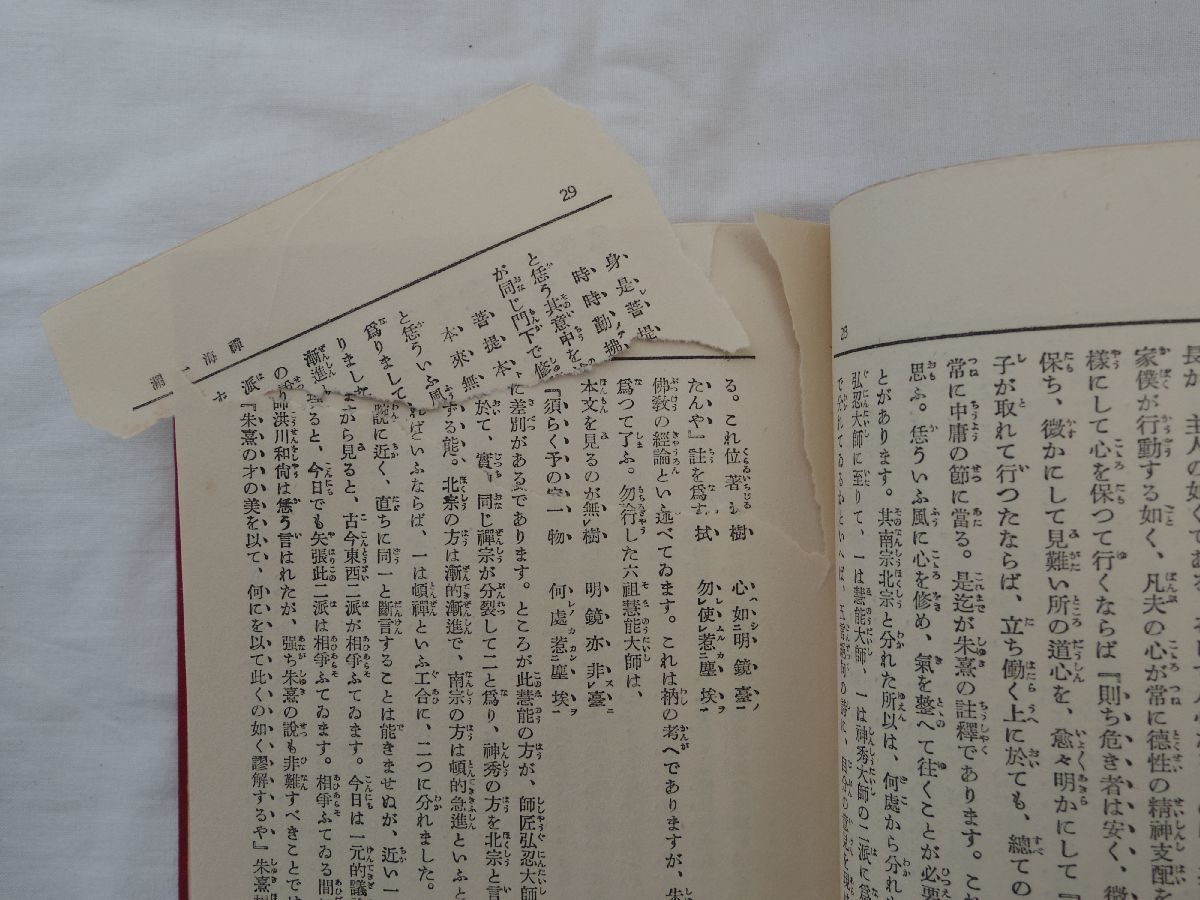 長が、主人の如くである
家僕が行動する如く、凡夫の心が常に德性の精神支配を
樣にして心を保つて行くならば『則ち危き者は安く、微
保ち、微かにして見難い所の道心を、愈々明かにして『
子が取れて行つたならば、立ち働く上に於ても、總ての
常に中庸の節に當る。是迄が朱熹の註釋であります。これ
思ふ。恁ういふ風に心を修め、氣を整へて往くことが必要
とがあります。其南宗北宗と分れた所以は、何處から分れ
弘忍大師に至りて、一は慧能大師、一は神秀大師の二派に爲
29
身是菩提
時時勤拂
と恁う其意中を
が同じ門下で修
菩提本
本來無
と恁ういふ風
爲りまして
りました
漸進と
の
派
禪海一瀾
る。これ位著 樹 心如明鏡臺
たんや』註を爲す 拭 勿使惹塵埃
佛敎の經論とい 述べてゐます。これは柄の考へでありますが、朱
爲つて了ふ。勿 行した六祖慧能大師は、
本文を見るのが無 樹 明鏡亦非臺
『須らく予の 一物 何處惹塵埃
に差別がある であります。ところが此慧能の方が、師匠弘忍大師
於て、實 同じ禪宗が分裂して二と爲り、神秀の方を北宗と言
する能。北宗の方は漸的漸進で、南宗の方は頓的急進といふと
ればどいふならば、一は頓禪といふ工合に、二つに分れました。
說に近く、直ちに同一と斷言することは能きませぬが、近い一
ますから見ると、古今東西二派が相爭ふてゐます。今日は一元的議
ると、今日でも矢張此二派は相爭ふてゐます。相爭ふてゐる間
師洪川和尙は恁う言はれたが、强ち朱熹の說も非難すべきことでは
『朱熹の才の美を以て、何にを以て此くの如く謬解するや』朱熹